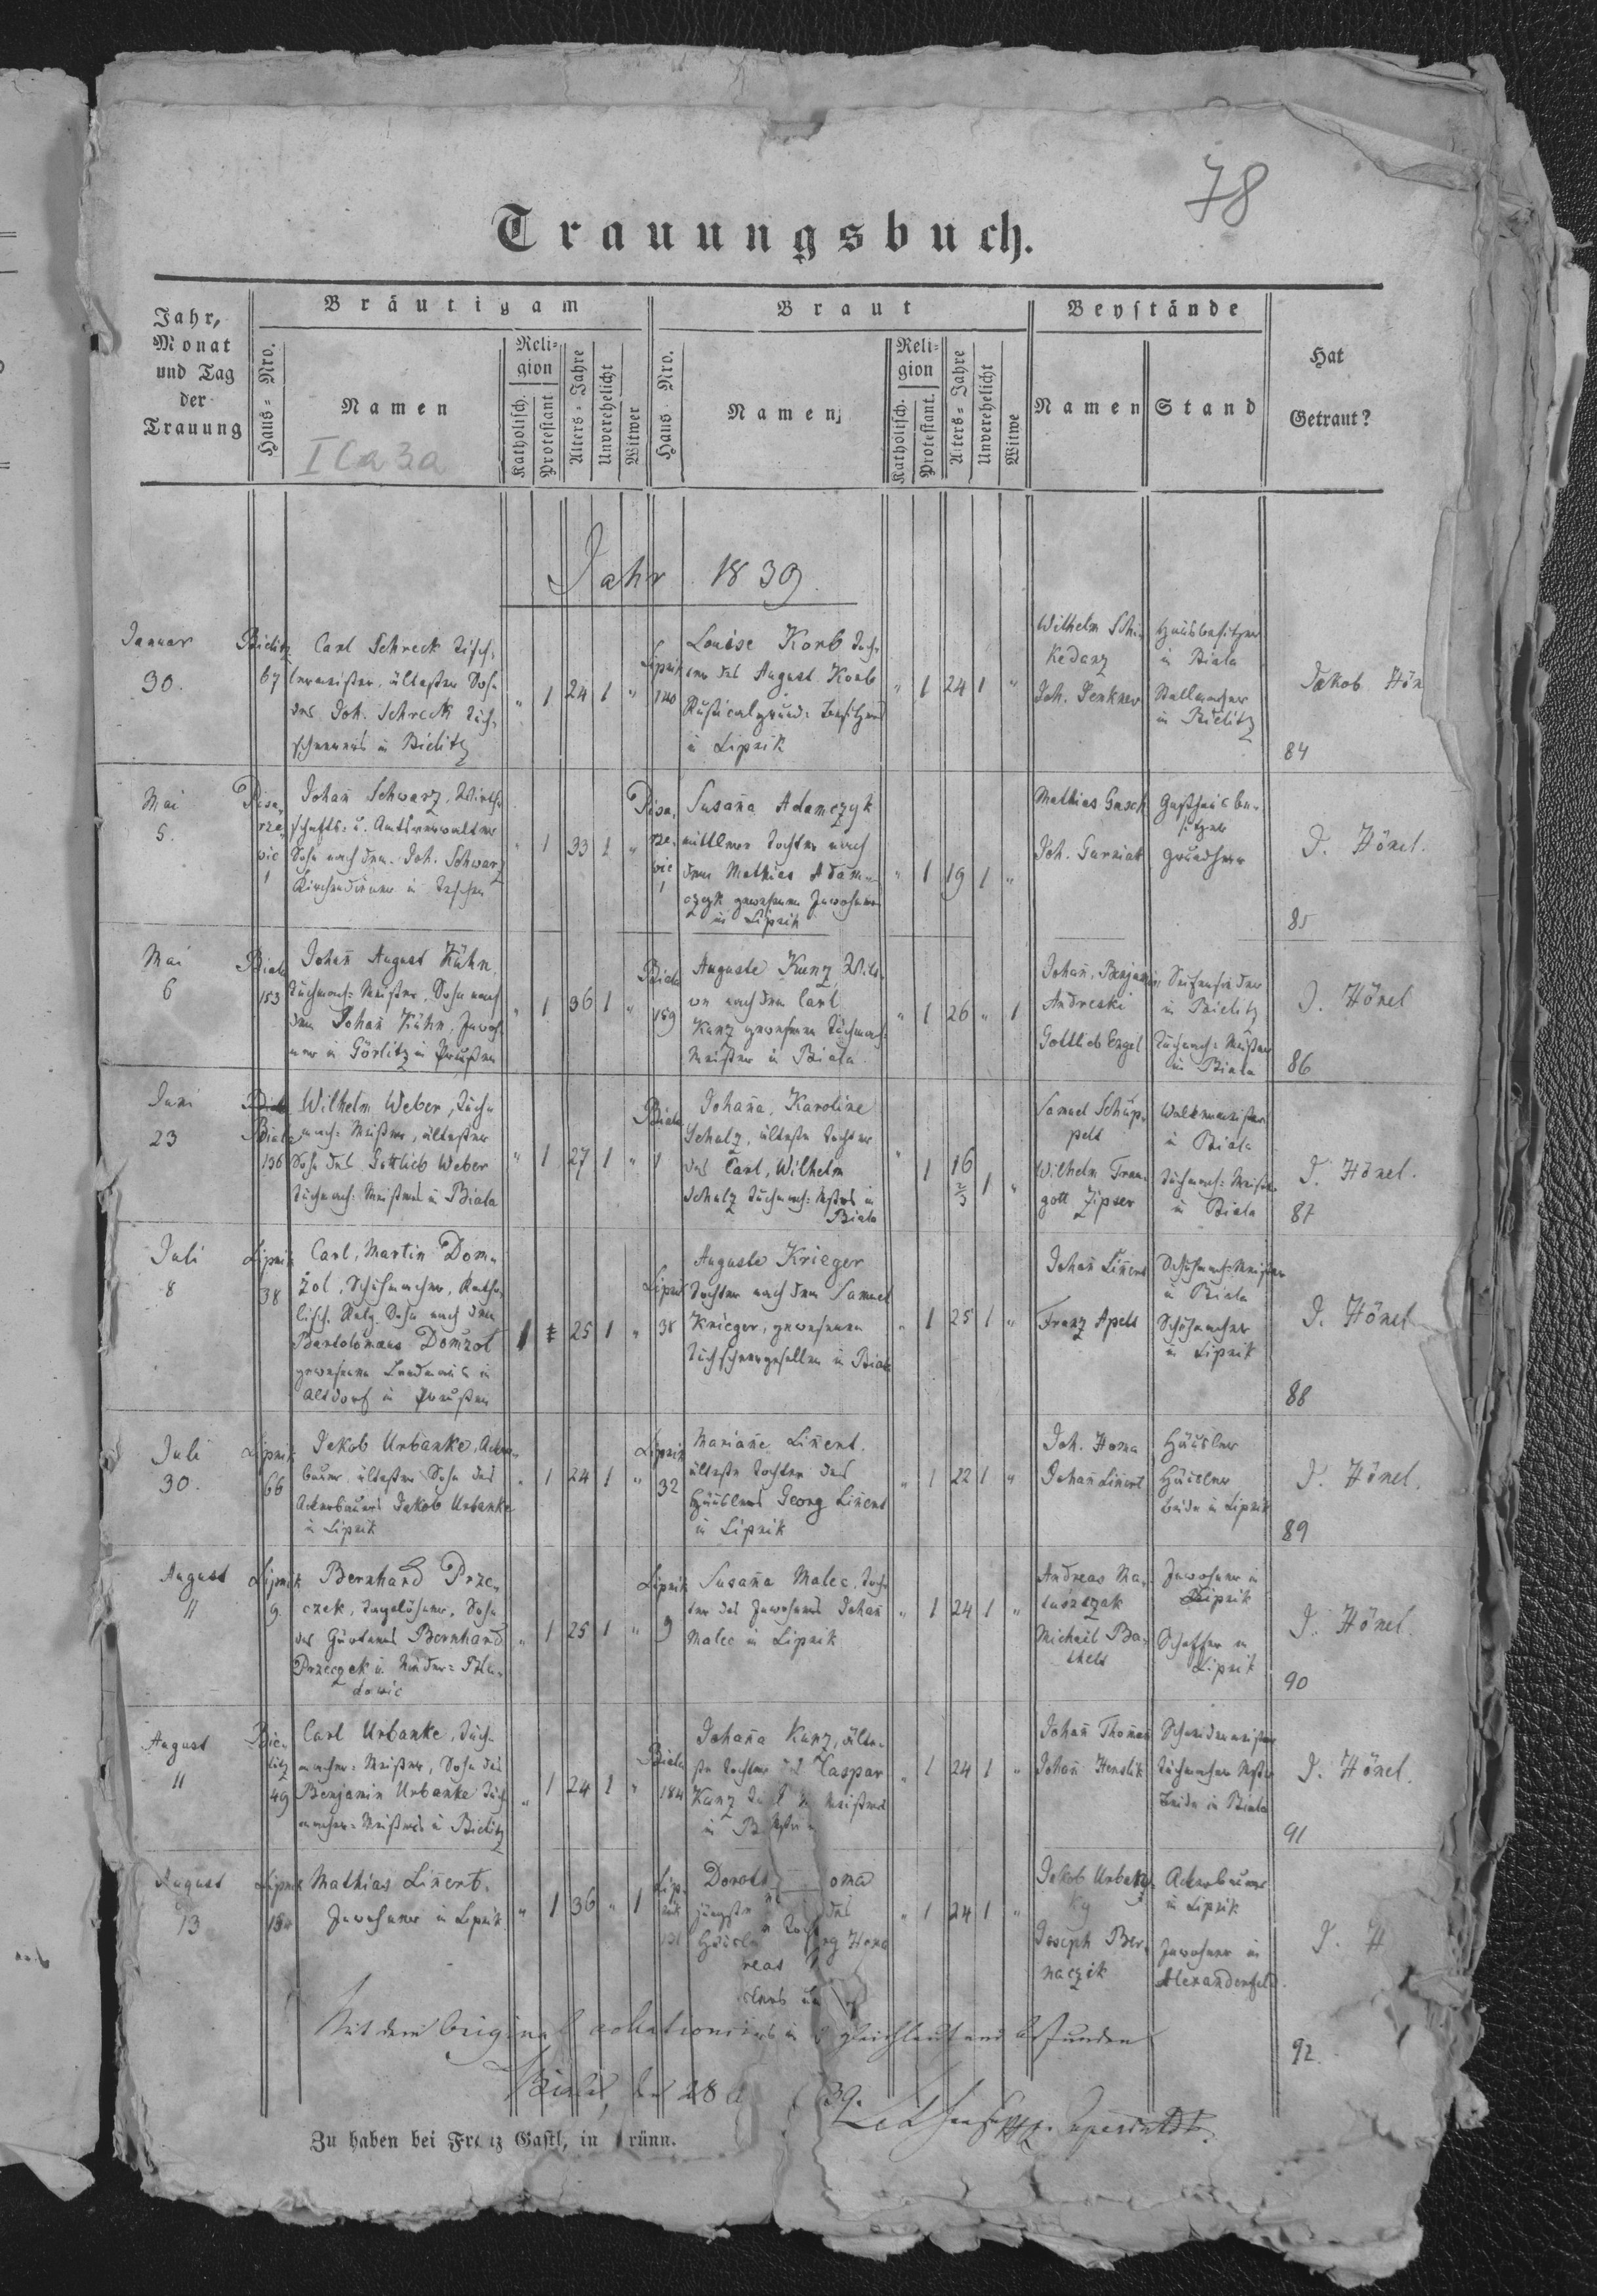 78
Trauungsbuch.
Jahr, Monat und Tag der Trauung
Bräutigam
Braut
Beystände
Hat Getraut?
Haus-Nro.
Namen
Religion
Katholisch.
Protestant
Alters-Jahre
Unverehelicht
Witwer
Haus-Nro.
Namen
Religion
Katholisch.
Protestant.
Alters-Jahre
Unverehelicht
Witwe
Namen
Stand
I C a 3 a
Jahr 1839
Januar 30.
Bielitz 67
Carl Schreck Tisch-
lermeister, ältester Sohn
des Joh. Schreck Tuch-
scherers in Bielitz
" 1 24 1 "
Lipnik 140
Louise Korb Toch-
ter des August Korb
Rusticalgrund-Besitzers
in Lipnik
" 1 24 1 "
Wilhelm Schi-
kedanz
Hausbesitzer
in Biala
Joh. Jenkner
Stellmacher
in Bielitz
Jakob Hön
84
Mai 5.
Pisa-
rze-
vic
1
Johañ Schwarz, Wirth-
schafts- u. Amtsverwalter
Sohn nach dem Joh. Schwarz
Kirchendiener in Teschen
" 1 33 1 "
Pisa-
rze-
vic
1
Susaña Adamczyk
mittlere Tochter nach
dem Mathias Adam-
czyk gewesenen Inwohner
in Lipnik
" 1 19 1 "
Mathias Gasch
Gasthausbe-
sitzer
Joh. Gurniak
Grundherr
J. Hönel.
85
Mai 6
Biala 153
Johañ August Kühn,
Tuchmach-Meister, Sohn nach
dem Johañ Kühn, Inwoh-
ner in Görlitz in Preußen
" 1 36 1 "
Biala 159
Auguste Kunz, Wit-
we nach dem Carl
Kunz gewesenen Tuchmach-
Meister in Biala
" 1 26 " 1
Johañ, Benjamin
Andreski
Seifensieder
in Bielitz
Gottlieb Engel
Tuchmach-Meister
in Biala
J. Hönel
86
Juni 23
Biala 136
Wilhelm Weber, Tuch-
mach-Meister, ältester
Sohn des Gottlieb Weber
Tuchmach-Meisters in Biala
" 1 27 1 "
Biala 1
Johaña, Karoline
Schulz, älteste Tochter
des Carl, Wilhelm
Schulz Tuchmach-Mstrs in
Biala
" 1 16 2/3 1 "
Samuel Schüp-
pelt
Walkermeister
in Biala
Wilhelm Trau-
gott Zipser
Tuchmach-Meister
in Biala
J. Hönel.
87
Juli 8
Lipnik 38
Carl, Martin Dom-
żol, Schuhmacher, Katho-
lisch. Relig. Sohn nach dem
Bartolomäus Domżol
gewesenen Landmañs in
Altdorf in Preußen
1 25 1 "
Lipnik 38
Auguste Krieger
Tochter nach dem Samuel
Krieger, gewesenen
Tuchscherergesellen in Biala
" 1 25 1 "
Johañ Liñert
Schuhmach-Meister
in Biala
Franz Apelt
Schuhmacher
in Lipnik
J. Hönel
88
Juli 30.
Lipnik 66
Jakob Urbanke, Acker-
bauer, ältester Sohn des
Ackerbauers Jakob Urbanke
in Lipnik
" 1 24 1 "
Lipnik 32
Mariañe Liñert,
älteste Tochter des
Häuslers Georg Liñert
in Lipnik
" 1 22 1 "
Joh. Homa
Häusler
Johañ Liñert
Häusler
beide in Lipnik
J. Hönel.
89
August 11
Lipnik 9
Bernhard Prze-
czek, Tagelöhner, Sohn
des Gärtners Bernhard
Przeczek in Nieder-
" 1 25 1 "
Lipnik 9
Susaña Malec, Toch-
ter des Inwohners Johañ
Malec in Lipnik
" 1 24 1 "
Andreas Ma-
Inwohner in
Lipnik
Michael Ba-
Schaffer in
Lipnik
J. Hönel.
90
August 11
Bie-
litz
49
Carl Urbanke, Tuch-
macher-Meister, Sohn des
Benjamin Urbanke Tuch-
macher-Meisters in Bielitz
" 1 24 1 "
Biala 184
Johaña Kunz, älte-
ste Tochter des Caspar
Kunz
" 1 24 1 "
Johañ Thomas
Schneidermeister
Johañ Henslik
Tuchmacher Mstr
beide in Biala
J. Hönel.
91
August 13
Lipnik
Mathias Liñert,
Inwohner in Lipnik.
" 1 36 " 1
Lip-
nik
Dorot oma
jüngste
" 1 24 1 "
Jakob Urbanz-
ky
Ackerbauer
in Lipnik
Joseph Ber-
naczik
Inwohner in
Alexanderfeld.
J. H
92.
Mit dem Original gleichlautend befunden
Biala, den 28 39.
Zu haben bei Franz Gastl, in Brünn.